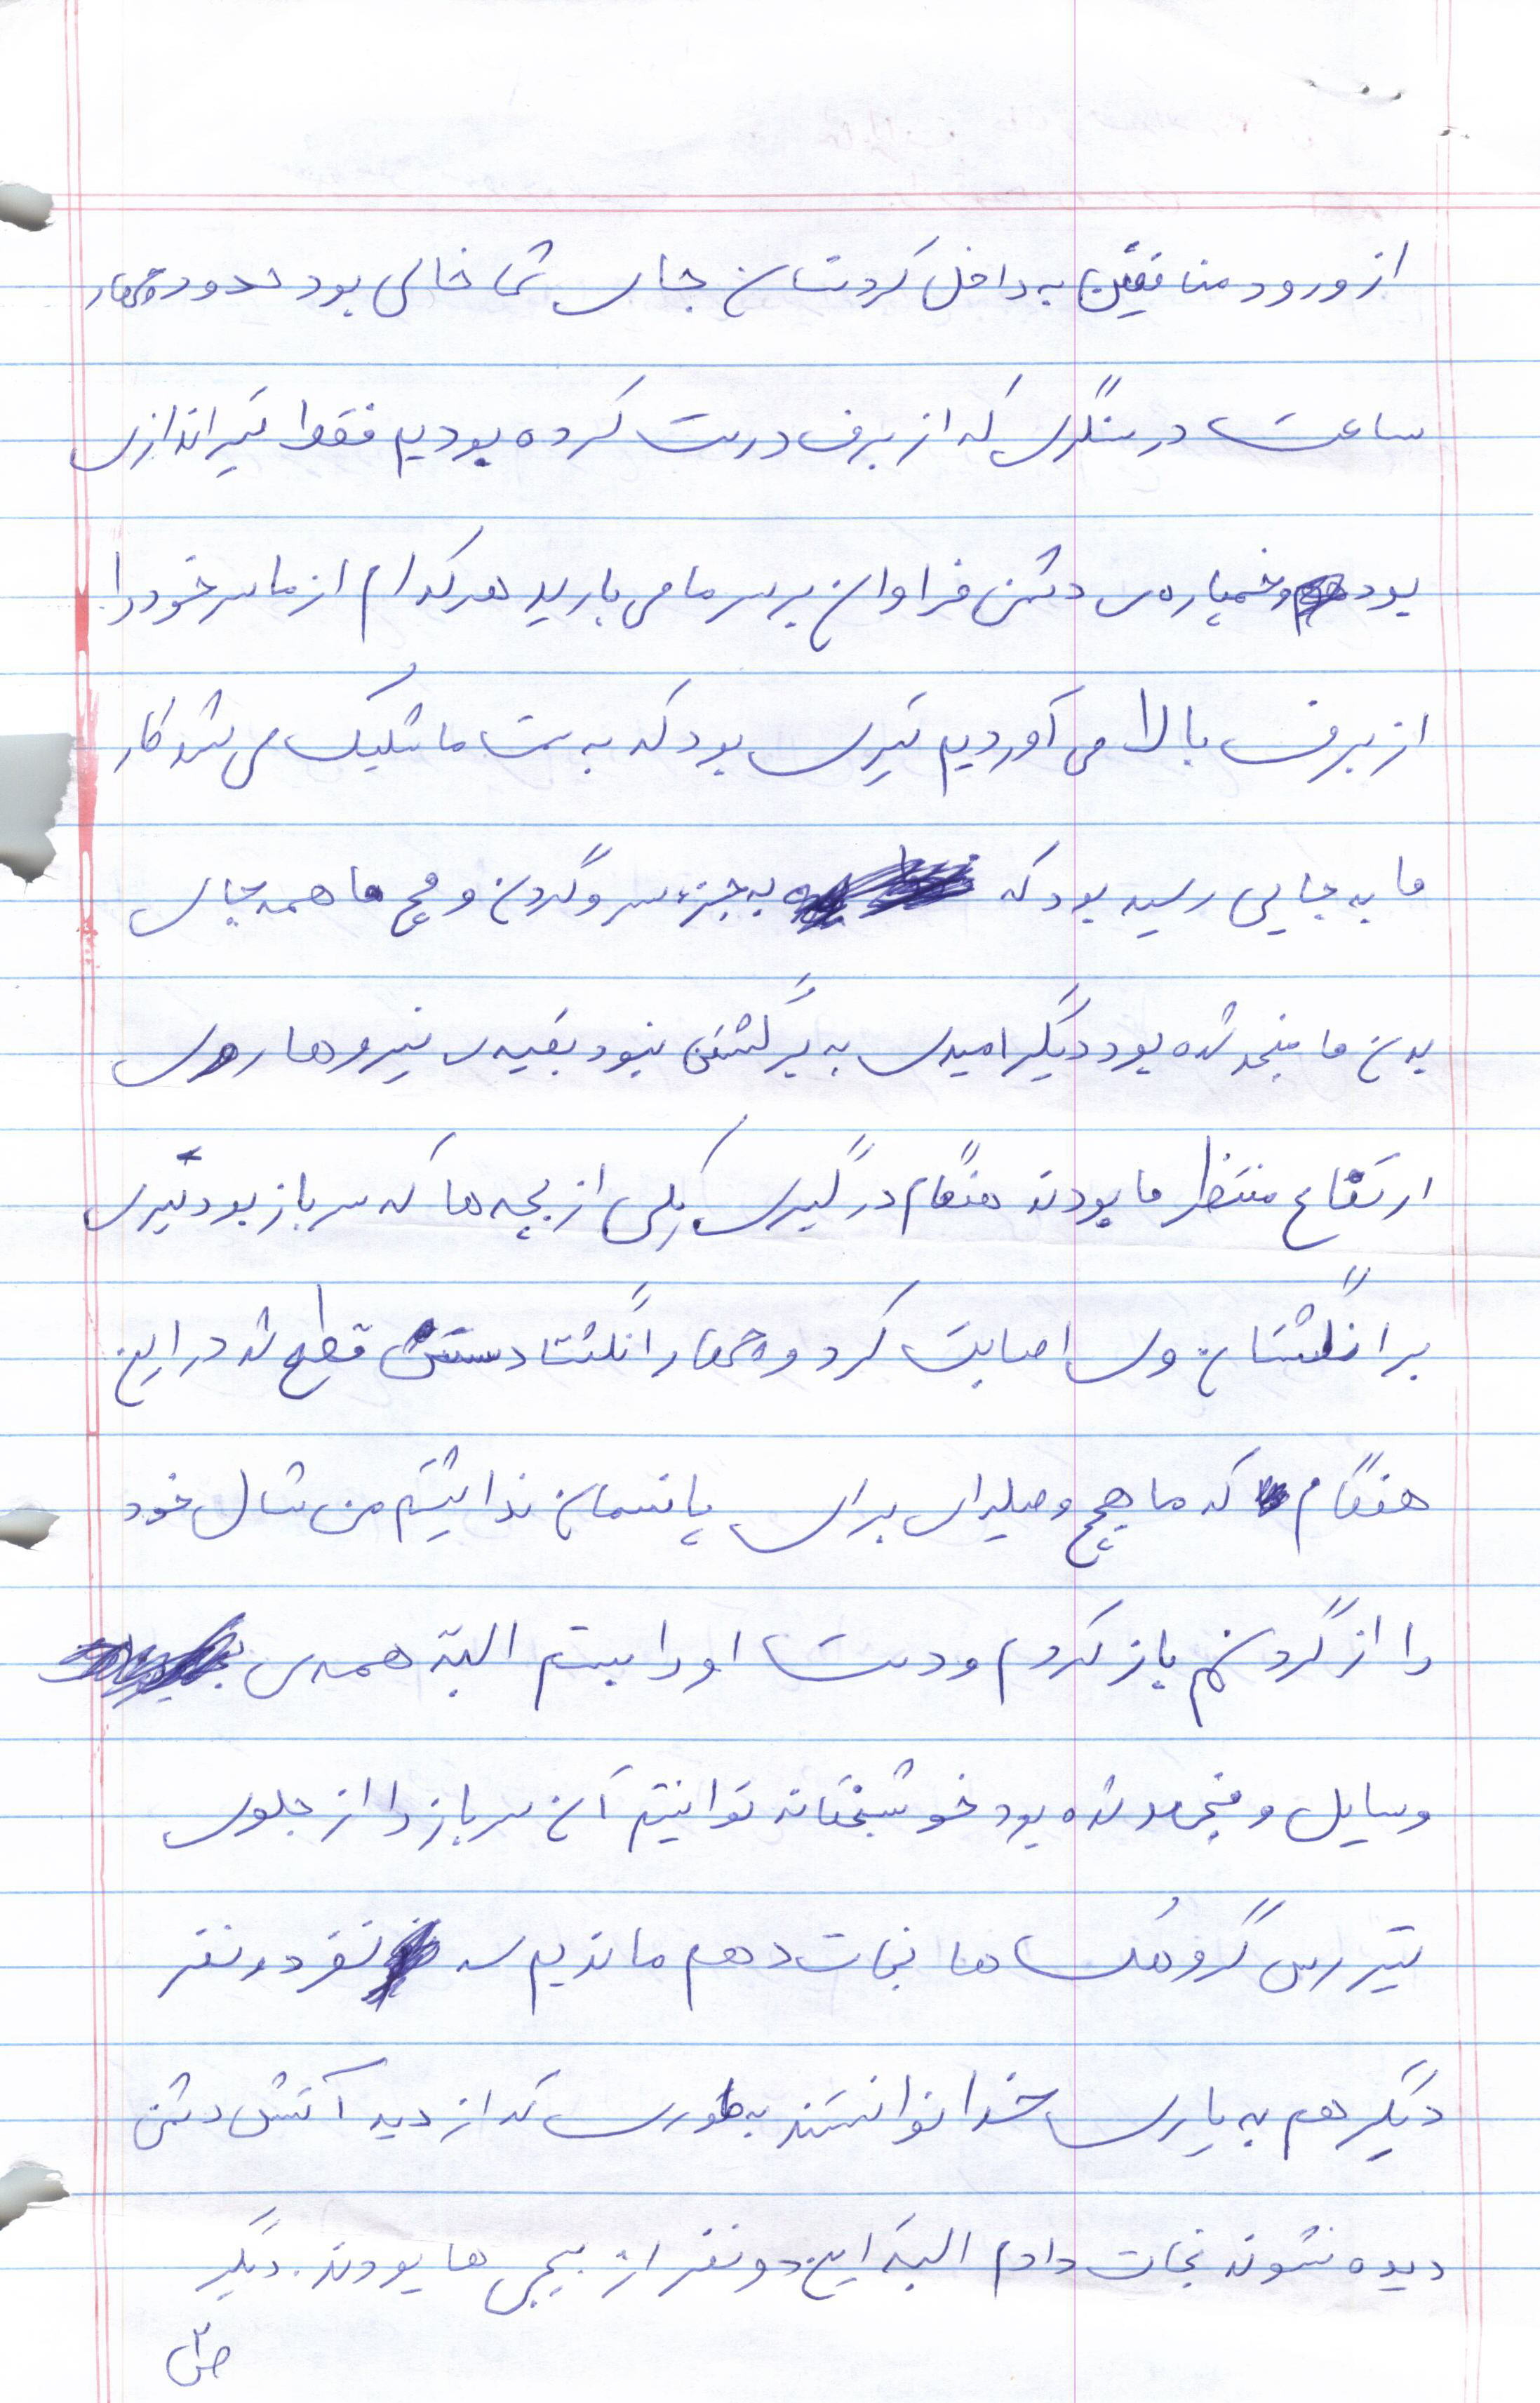 از ورود منافقین به داخل کردستان جای شما خالی بود حدود چهار
ساعت در سنگری که از برف درست کرده بودیم فقط تیراندازی
بود و خمپاره‌ی دشمن فراوان بر سر ما می بارید هر کدام از ما سر خود را
از برف بالا می آوردیم تیری بود که به سمت ما شلیک می شد کار
ما به جایی رسید بود که به جزء سر و گردن و مچ ما همه جای
بدن ما منجمد شده بود دیگر امیدی به برگشتن نبود بقیه‌ی نیروها روی
ارتفاع منتظر ما بودند هنگام درگیری یکی از بچه ها که سرباز بود تیری
بر انگشتان وی اصابت کرد و چهار انگشت دستش قطع شد در این
هنگام که ما هیچ وسیله‌ای برای پانسمان نداشتیم من شال خود
را از گردنم باز کردم و دست او را بستم البته همه‌ی
وسایل و منجمد شده بود خوشبختانه توانستم آن سرباز را از جلوی
تیررس گروهک ها نجات دهم ماندیم سه نفر دو نفر
دیگر هم به یاری خدا توانستند به طوری که از دید آتش دشمن
دیده نشوند نجات دادم البته این دو نفر از بسیجی ها بودند. دیگر
ص۲